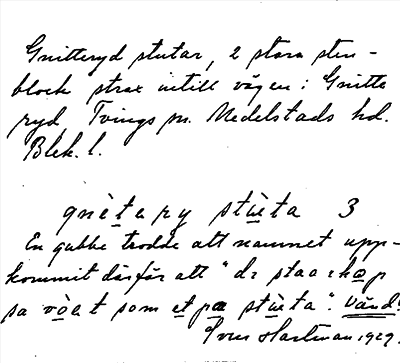 Gnitteryd stutar, 2 stora sten-
block strax intill vägen i Gnitte
ryd, Tvings sn. Medelstads hd.
Blek. l.
gnètery stùta 3
En gubbe trodde att namnet upp-
kommit därför att "dr staar
sa som et par stùta". Vänd!
Sven Hartman 1929.